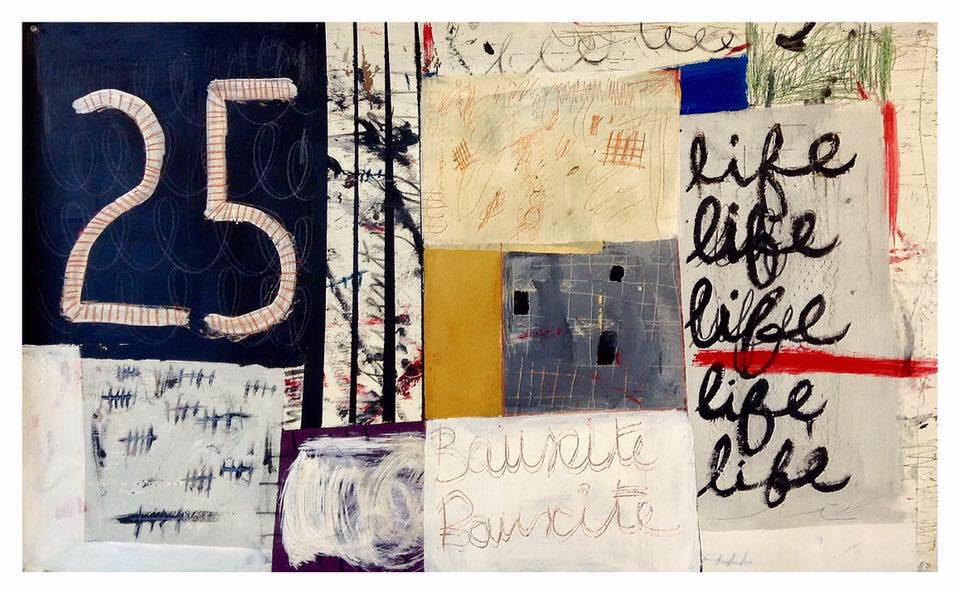 25
life
life
life
life
life
Bauxite
Bauxite